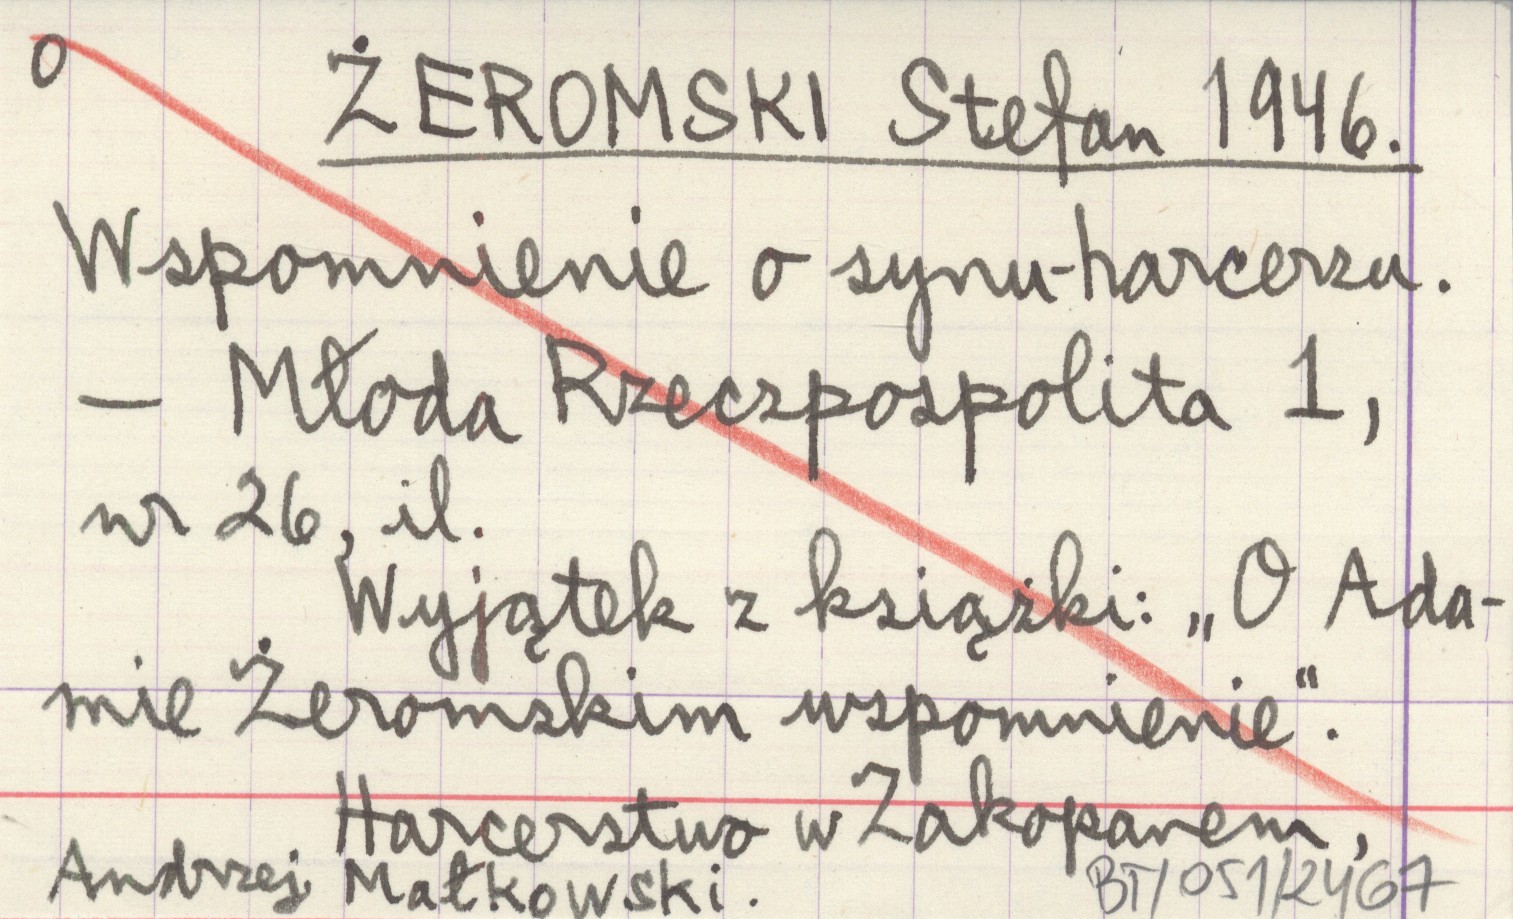 o ŻEROMSKI Stefan 1946.
Wspomnienie o synu-harcerzu.
– Młoda Rzeczpospolita 1,
nr 26, il.
Wyjątek z książki: „O Ada-
mie Żeromskim wspomnienie".
Harcerstwo w Zakopanem,
Andrzej Małkowski.
BT/051/2467